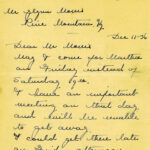 Mr Glynn Morris
Pine Mountain Ky
Dec 11-36
Dear Mr Morris
May I come for Martha
on Friday instead of
Saturday 19th
I have an important
meeting on that day
and will be unable
to get away.
I could get there late
on